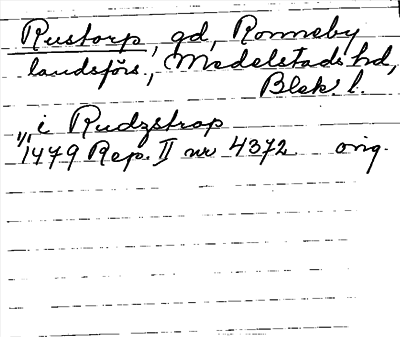 Rustorp, gd, Ronneby
landsförs., Medelstads hd,
Blek. l.
i Rudzstrop
1/11 1479 Rep. II nr 4372 orig.